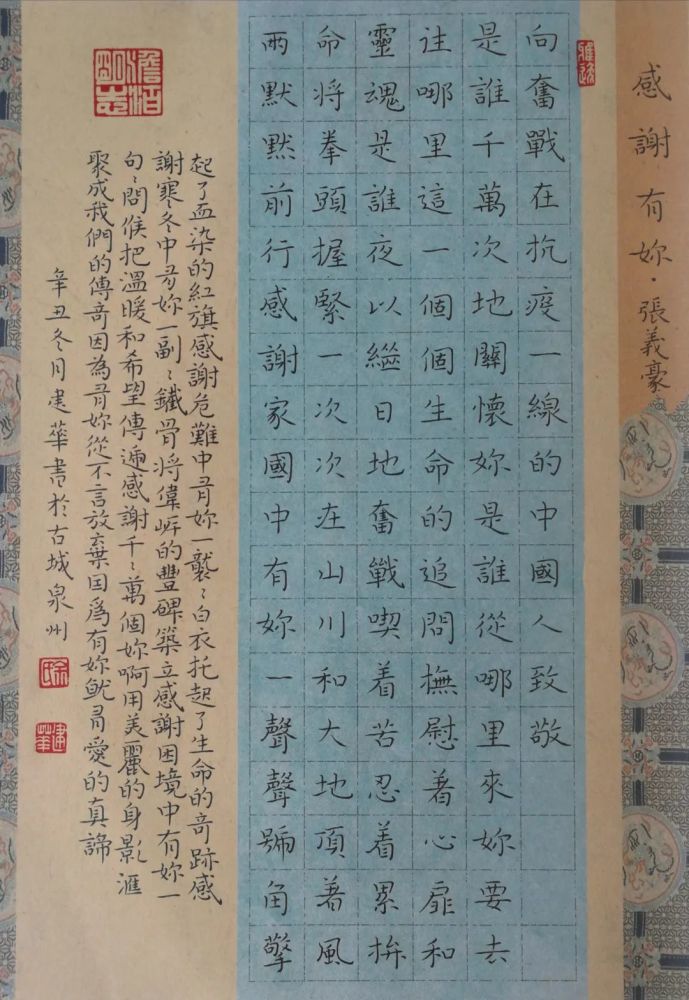 感謝有妳·張義豪
雅逸
向奮戰在抗疫一線的中國人致敬
是誰千萬次地關懷妳是誰從哪里來妳要去
往哪里這一個個生命的追問撫慰著心扉和
靈魂是誰夜以繼日地奮戰喫着苦忍着累拚
命將拳頭握緊一次次在山川和大地頂著風
雨默默前行感謝家國中有妳一聲聲號角擎
起了血染的紅旗感謝危難中有妳一襲〻白衣托起了生命的奇跡感
謝寒冬中有妳一副〻鐵骨將偉岸的豐碑築立感謝困境中有妳一
句〻問候把溫暖和希望傳遞感謝千〻萬個妳啊用美麗的身影滙
聚成我們的傳奇因為有妳從不言放棄因為有妳就有愛的真諦
澹泊明志
辛丑冬月建華書於古城泉州
建華